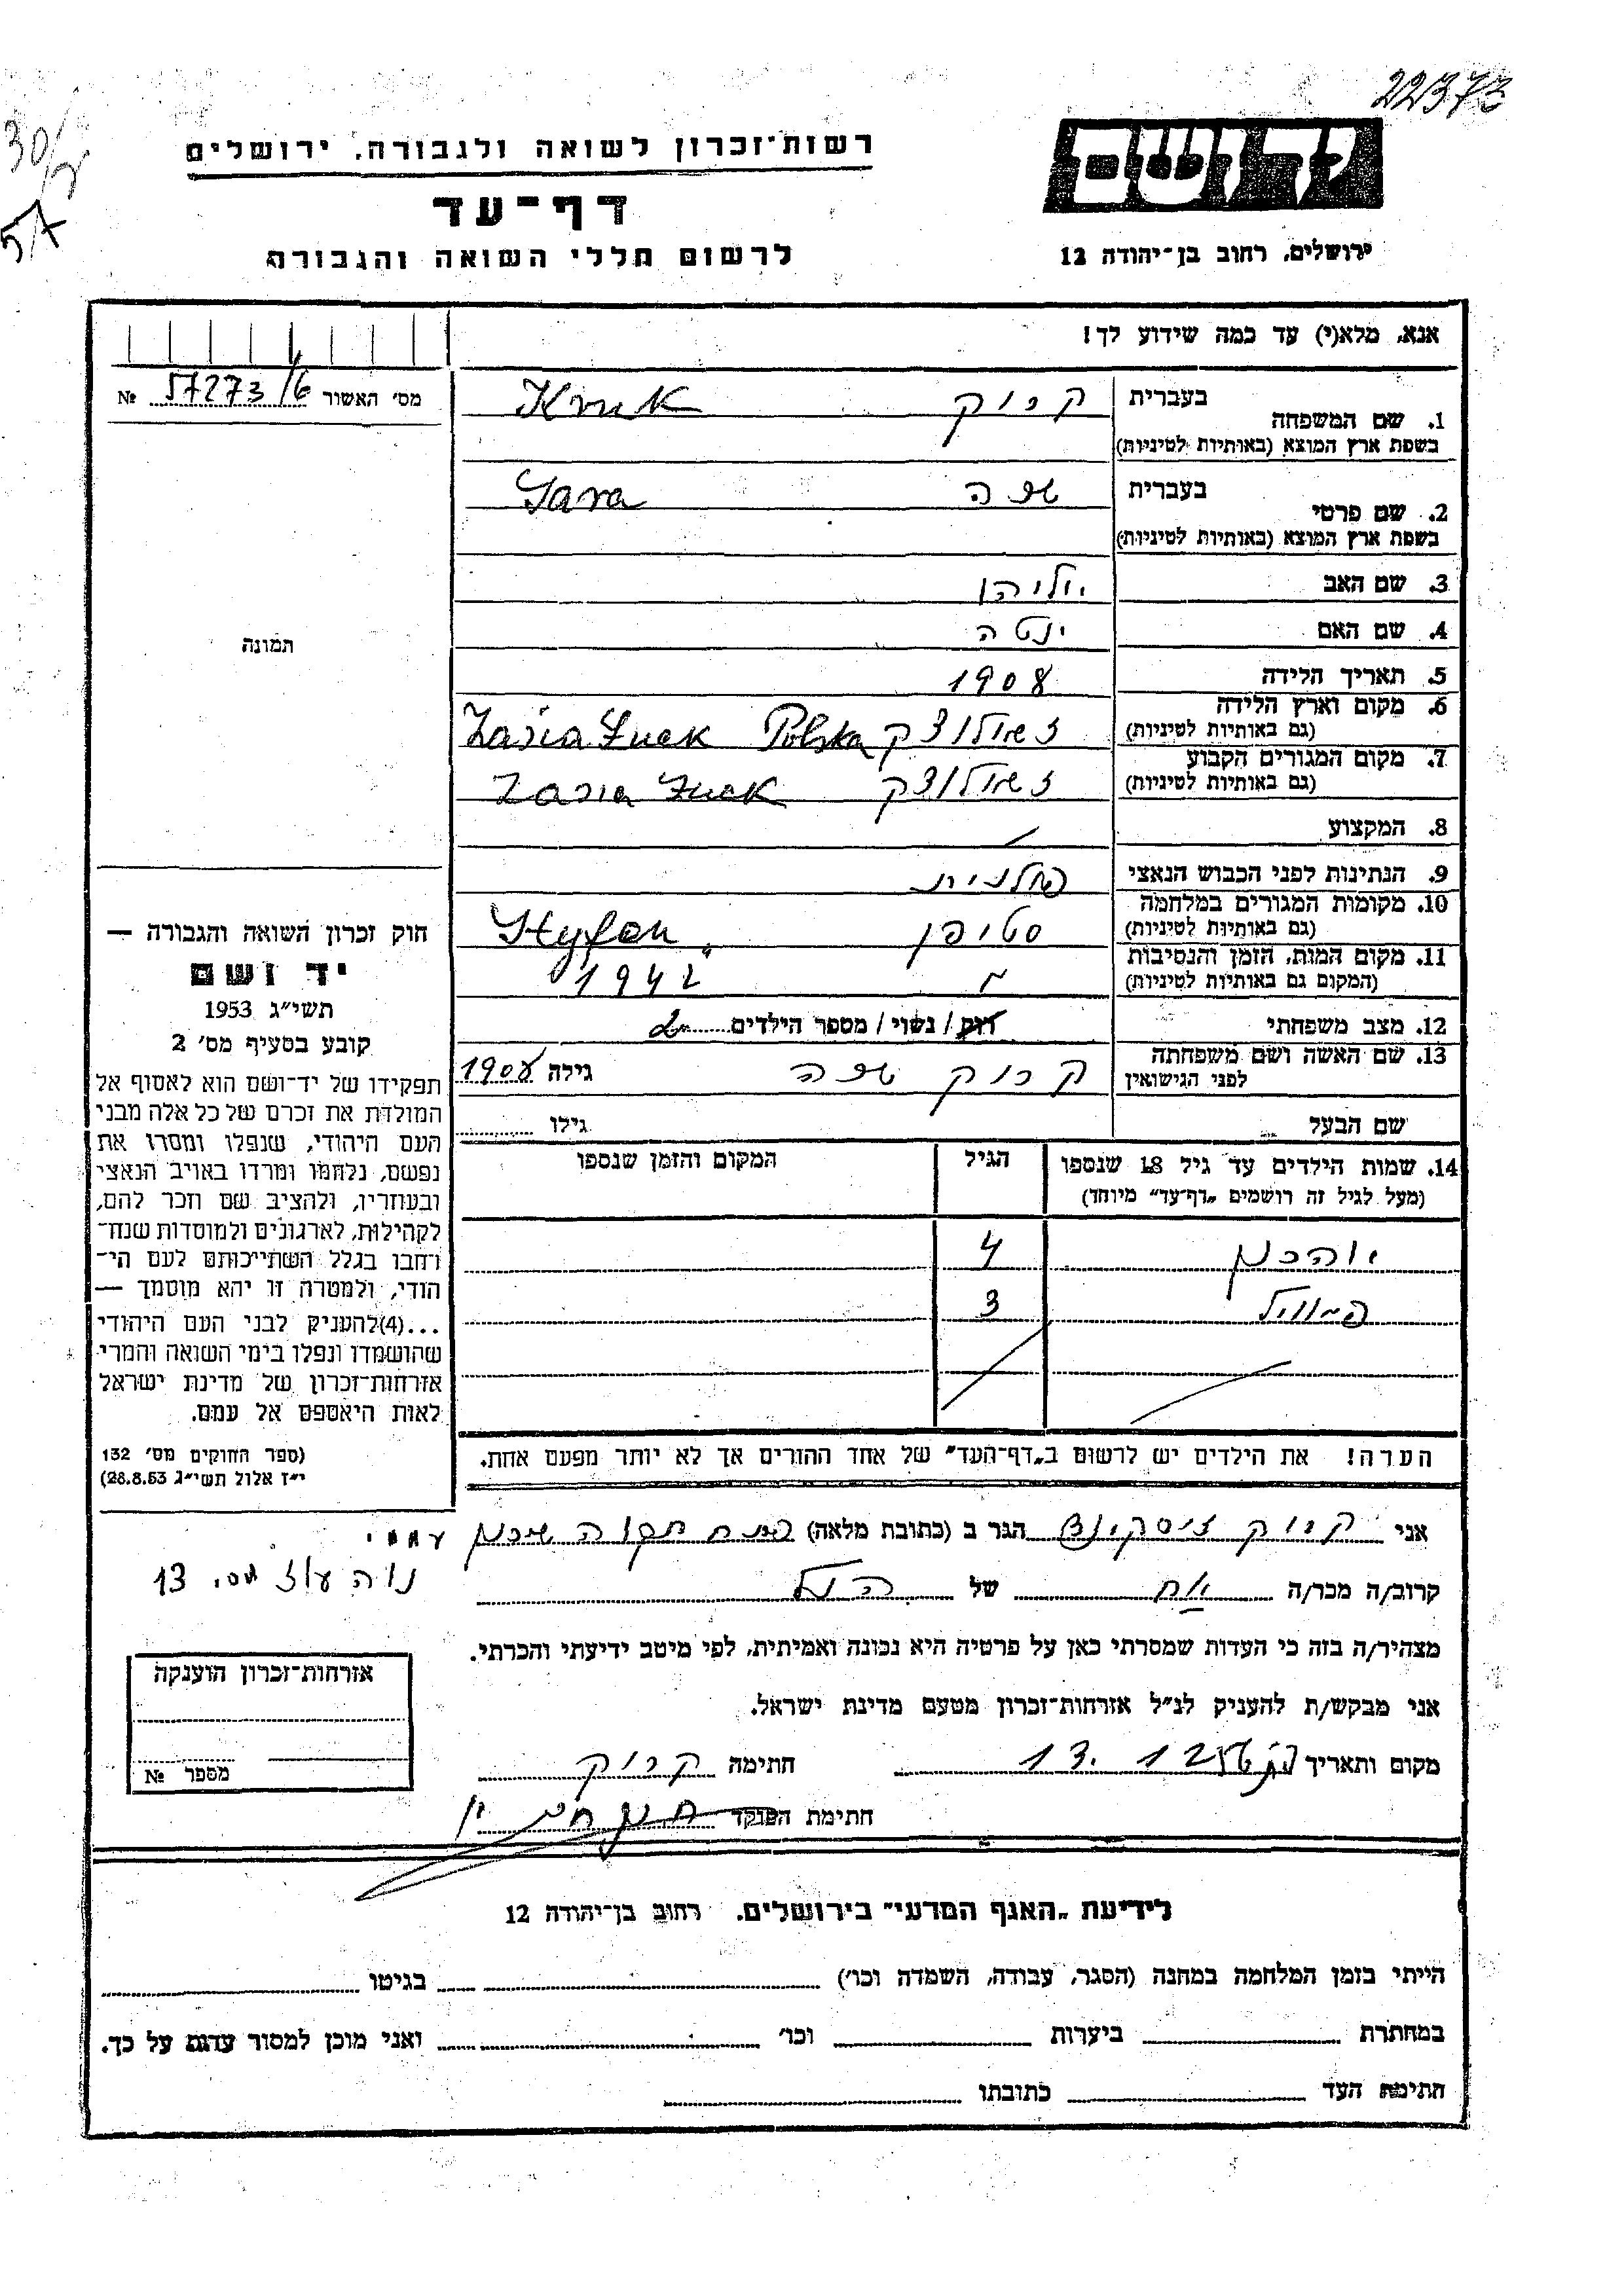 22373
30/
5/7
ידושם
רשות־זכרון לשואה ולגבורה, ירושלים
דף־עד
לרשום חללי השואה והגבורה
ירושלים, רחוב בן־יהודה 12
אנא, מלא(י) עד כמה שידוע לך!
מס' האשור 57273/6 №
בעברית קרוק Kruk
1. שם המשפחה
בשפת ארץ המוצא (באותיות לטיניות)
בעברית שרה Sara
2. שם פרטי
בשפת ארץ המוצא (באותיות לטיניות)
3. שם האב
4. שם האם ינטה
תמונה
5. תאריך הלידה 1908
6. מקום וארץ הלידה
(גם באותיות לטיניות) Polska
7. מקום המגורים הקבוע
(גם באותיות לטיניות)
8. המקצוע
9. הנתינות לפני הכבוש הנאצי פולנית
10. מקומות המגורים במלחמה
(גם באותיות לטיניות) סטיפן Styfen
11. מקום המות, הזמן והנסיבות
(המקום גם באותיות לטיניות) 1942
12. מצב משפחתי רוק / נשוי / מספר הילדים 2
13. שם האשה ושם משפחתה
לפני הנישואין קרוק שרה גילה 1908
שם הבעל גילו
14. שמות הילדים עד גיל 18 שנספו הגיל המקום והזמן שנספו
(מעל לגיל זה רושמים „דף־עד" מיוחד)
4
3
הערה! את הילדים יש לרשום ב„דף־העד" של אחד ההורים אך לא יותר מפעם אחת.
חוק זכרון השואה והגבורה —
יד ושם
תשי"ג 1953
קובע בסעיף מס' 2
תפקידו של יד־ושם הוא לאסוף אל
המולדת את זכרם של כל אלה מבני
העם היהודי, שנפלו ומסרו את
נפשם, נלחמו ומרדו באויב הנאצי
ובעוזריו, ולהציב שם וזכר להם,
לקהילות, לארגונים ולמוסדות שנח־
רחבו בגלל השתייכותם לעם הי־
הודי, ולמטרה זו יהא מוסמך —
...(4)להעניק לבני העם היהודי
שהושמדו ונפלו בימי השואה והמרי
אזרחות־זכרון של מדינת ישראל
לאות היאספם אל עמם.
(ספר החוקים מס' 132
י"ז אלול תשי"ג 28.8.53)
אני קרוק זיסקינד הגר ב (כתובת מלאה) פתח תקוה שיכון עממי
נוה עוז 13
קרוב/ה מכר/ה אח של הנ"ל
מצהיר/ה בזה כי העדות שמסרתי כאן על פרטיה היא נכונה ואמיתית, לפי מיטב ידיעתי והכרתי.
אני מבקש/ת להעניק לנ"ל אזרחות־זכרון מטעם מדינת ישראל.
מקום ותאריך חתימה קרוק
חתימת הפוקד
אזרחות־זכרון הוענקה
מספר №
לידיעת „האגף המדעי" בירושלים, רחוב בן־יהודה 12
הייתי בזמן המלחמה במחנה (הסגר, עבודה, השמדה וכו') בגיטו
במחתרת ביערות וכו' ואני מוכן למסור עדות על כך.
חתימת העד כתובתו